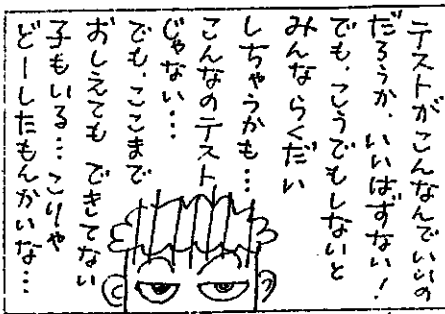 テストがこんなんでいいの
だろうか、いいはずない！
でも、こうでもしないと
みんならくだい
しちゃうかも…
こんなのテスト
じゃない…
でも、ここまで
おしえても できてない
子もいる…こりゃ
どーしたもんかいな…